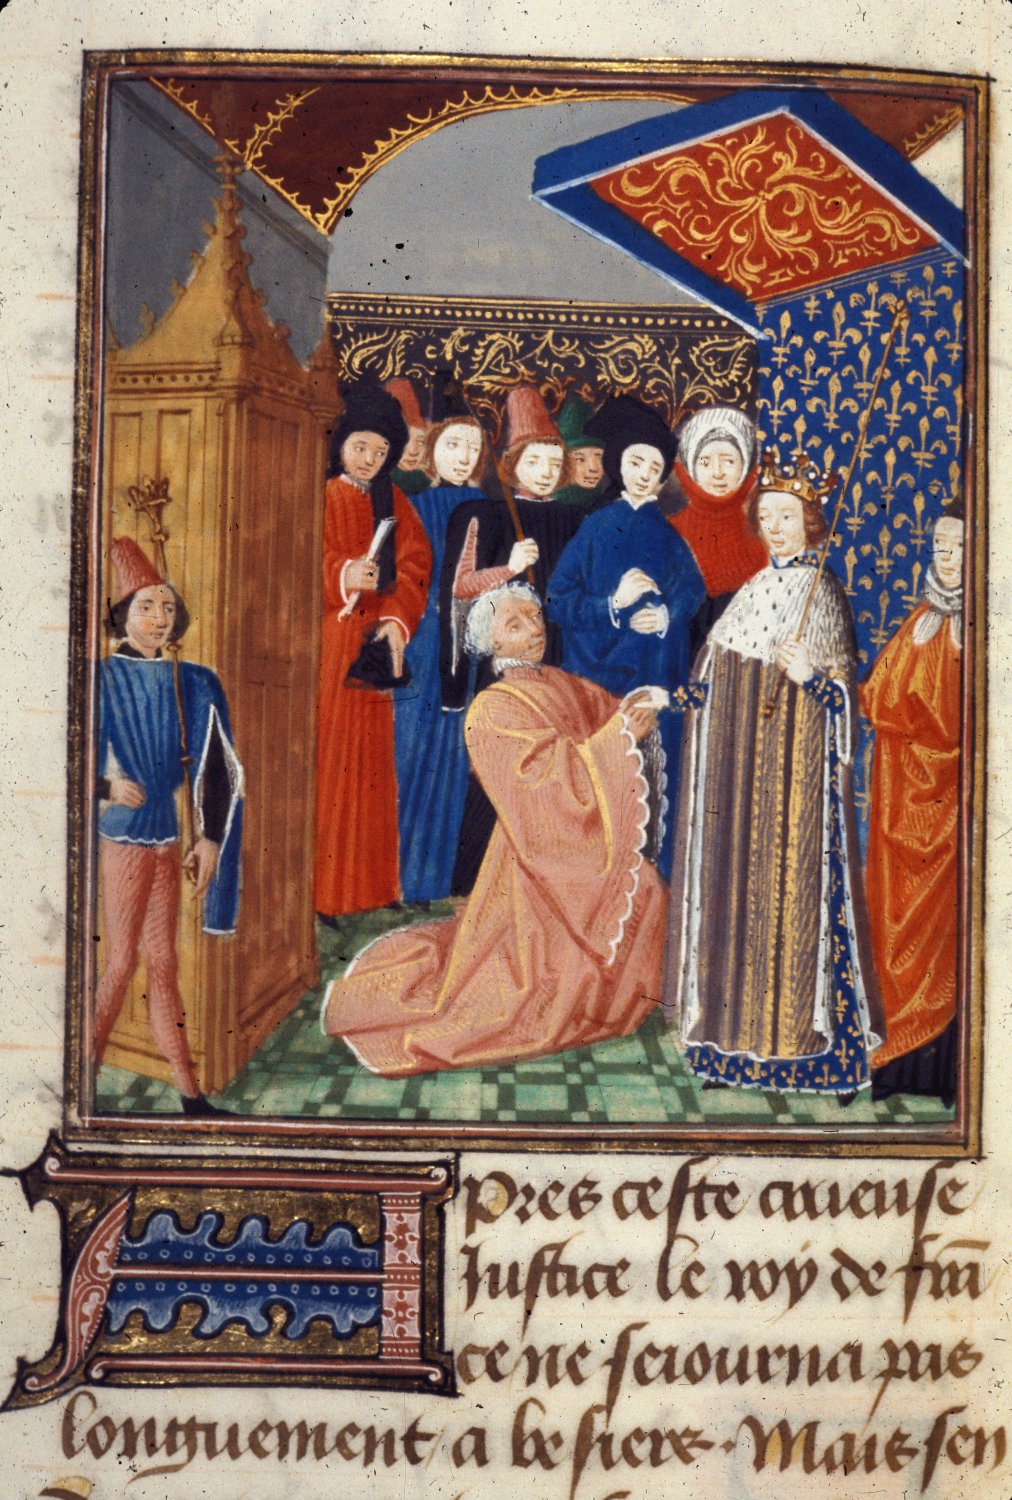 Apres ceste crueuse
Justice le roy de frãn
ce ne seiourna pas
longuement a besiers. Mais sen